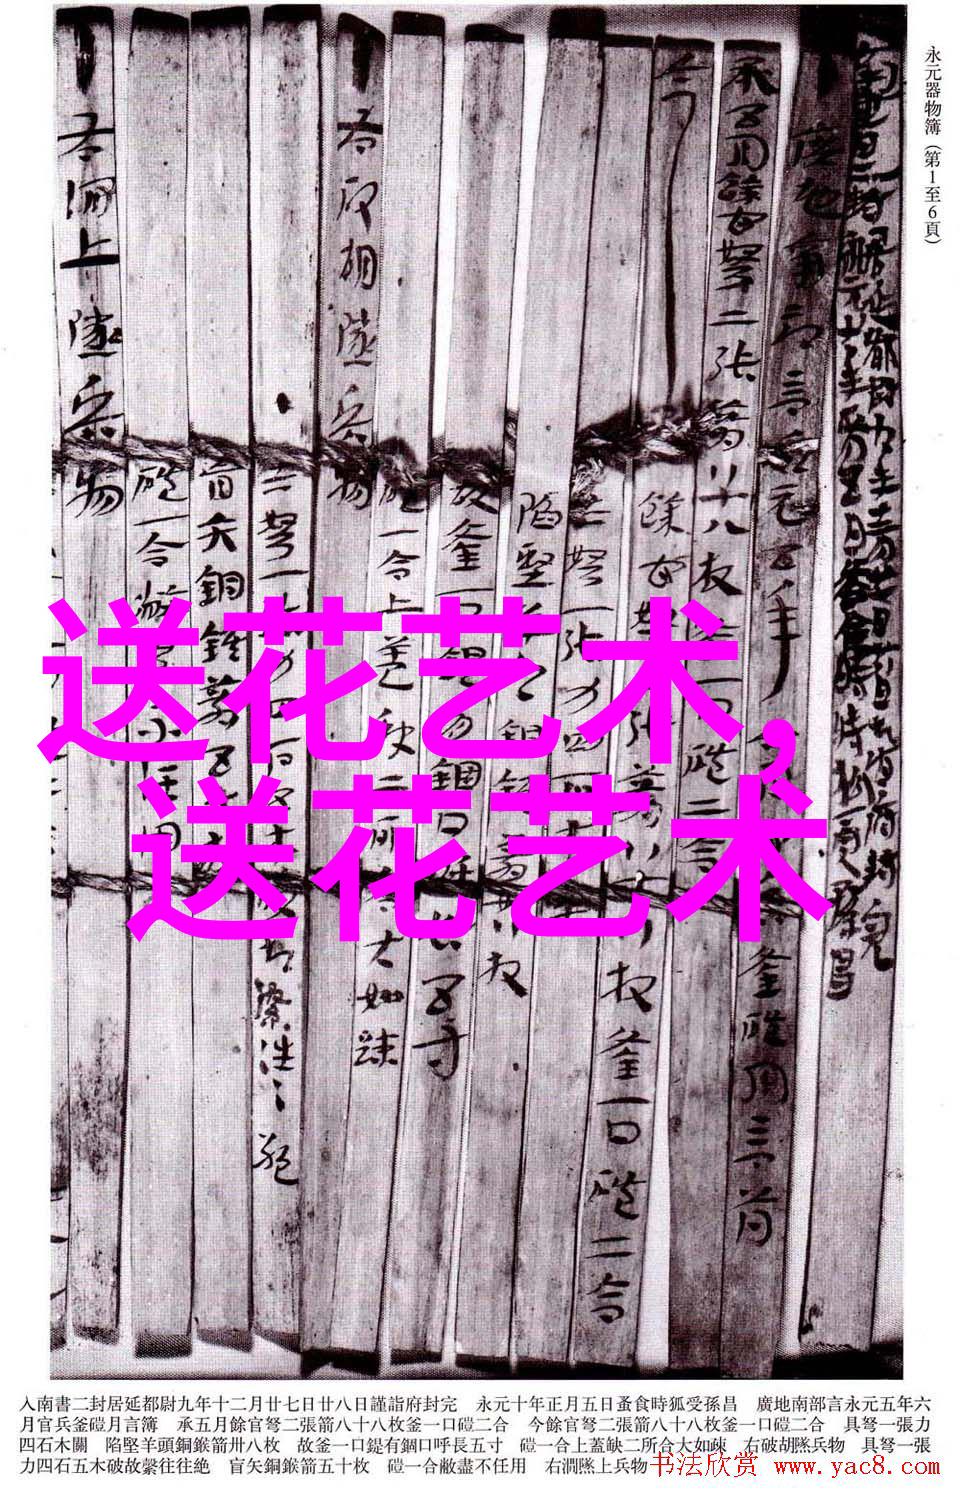 永元器物簿（第1至6頁）
承五月餘官弩二張箭八十八枚釜一口磑二合
今餘官弩二張箭八十八枚釜一口磑二合
右破胡隧兵物
右澗上隧兵物
送花艺术,
送花艺术
入南書二封居延都尉九年十二月廿七日廿八日謹詣府封完　永元十年正月五日蚤食時狐受孫昌　廣地南部言永元五年六
月官兵釜磑月言簿　承五月餘官弩二張箭八十八枚釜一口磑二合　今餘官弩二張箭八十八枚釜一口磑二合　具弩一張力
四石木關　陷堅羊頭銅鍭箭卅八枚　故釜一口鍉有錮口呼長五寸　磑一合上蓋缺二所合大如疎　右破胡隧兵物　具弩一張
力四石五木破故繫往往絶　盲矢銅鍭箭五十枚　磑一合敝盡不任用　右澗隧上兵物
书法欣赏 www.yac8.com